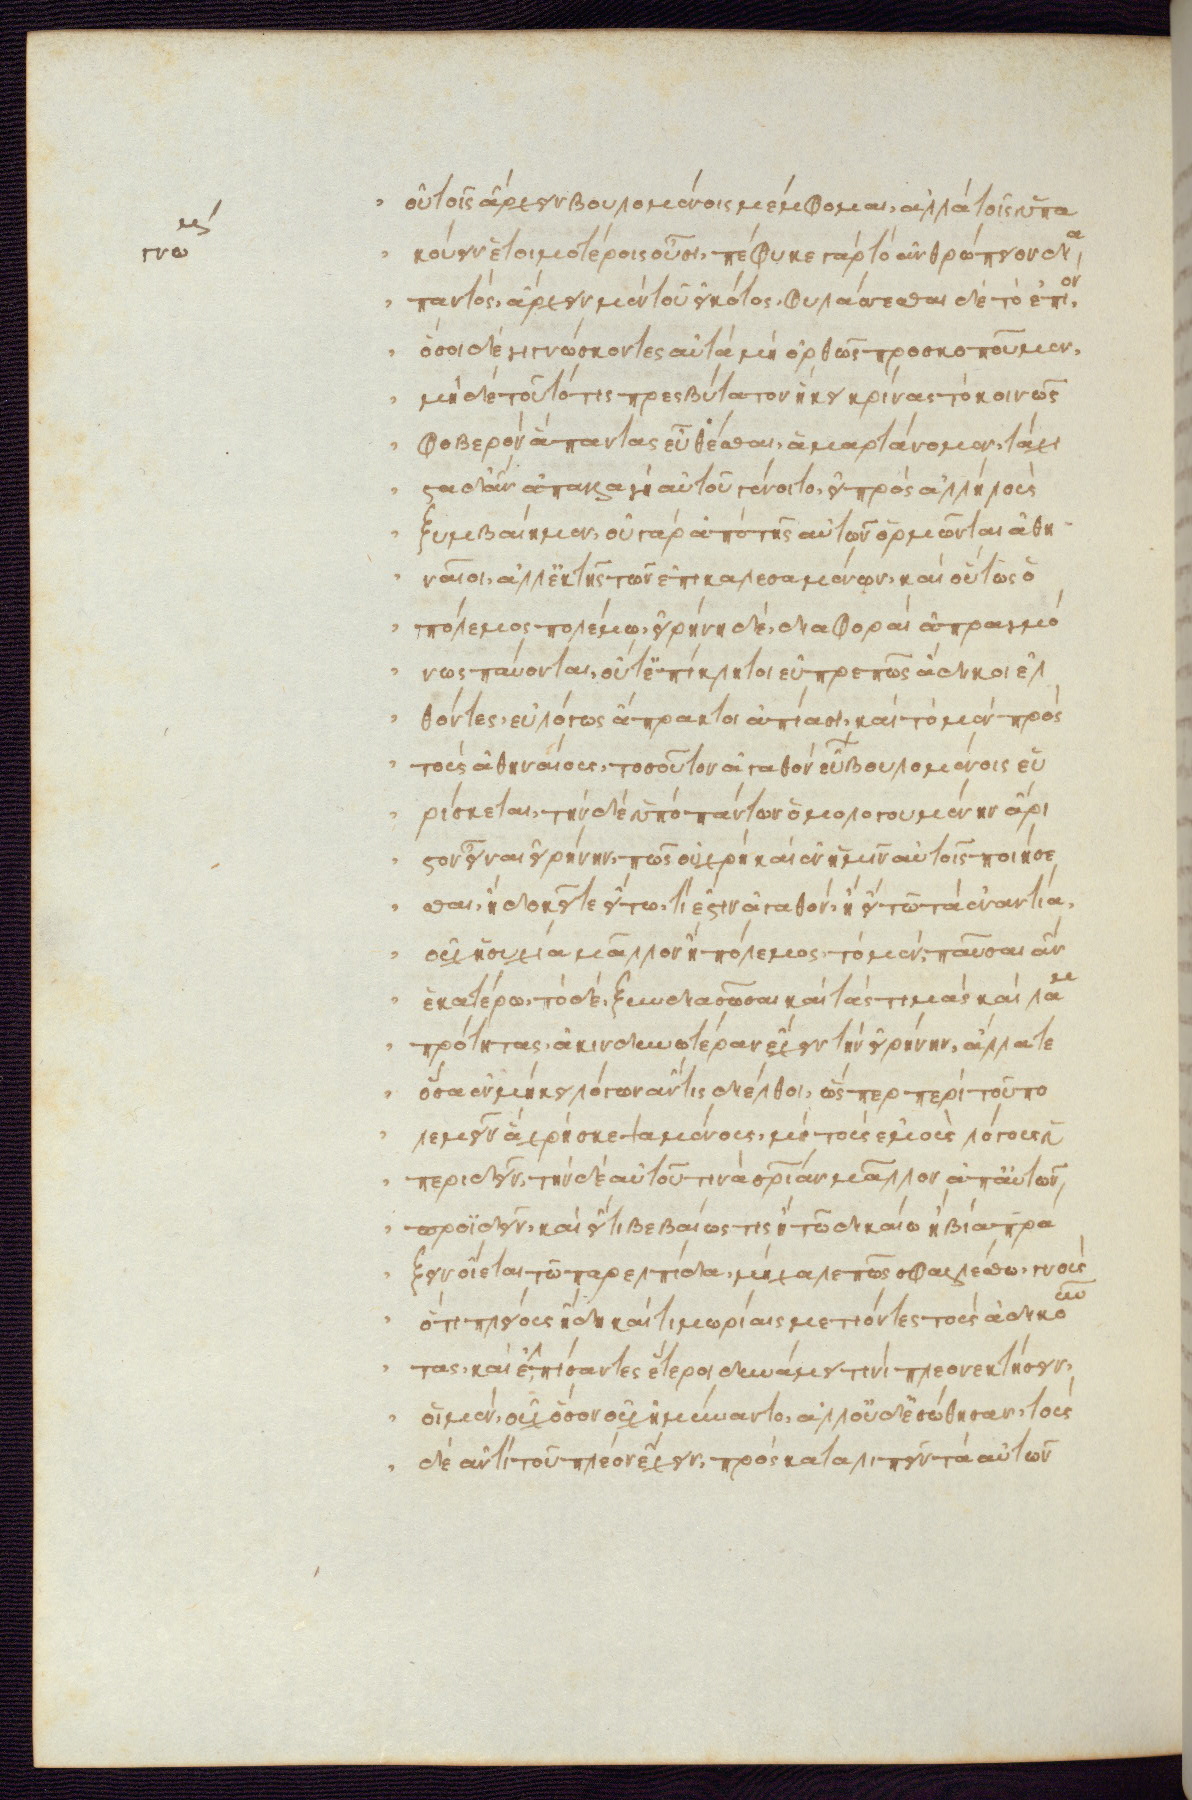 οὐ τοῖς ἄρχειν βουλομένοις μέμφομαι, ἀλλὰ τοῖς ὑπα
γνωμ
κούειν ἑτοιμοτέροις οὖσι, πέφυκε γὰρ τὸ ἀνθρώπειον διὰ
παντὸς, ἄρχειν μὲν τοῦ εἰκότος, φυλάσσεσθαι δὲ τὸ ἐπιόν,
ὅσοι δὲ γιγνώσκοντες αὐτὰ μὴ ὀρθῶς προσκοποῦμεν,
μηδὲ τοῦτό τις πρεσβύτατον ἥκει κρίνας τὸ κοινῶς
φοβερὸν ἅπαντας εὖ θέσθαι, ἁμαρτάνομεν, τάχι
στα δ' ἂν ἀπαλλαγὴ αὐτοῦ γένοιτο, εἰ πρὸς ἀλλήλους
ξυμβαίημεν, οὐ γὰρ ἀπὸ τῆς αὐτῶν ὁρμῶνται ἀθη
ναῖοι, ἀλλ' ἐκ τῆς τῶν ἐπικαλεσαμένων, καὶ οὕτως ὁ
πόλεμος πολέμω, εἰρήνη δέ, διαφοραὶ ἀπραγμό
νως παύονται, οἵ τ' ἐπίκλητοι εὐπρεπῶς ἄδικοι ἐλ
θόντες, εὐλόγως ἄπρακτοι ἀπίασι, καὶ τὸ μὲν πρὸς
τοὺς ἀθηναίους, τοσοῦτον ἀγαθὸν εὖ βουλομένοις εὑ
ρίσκεται, τὴν δὲ ὑπὸ πάντων ὁμολογουμένην ἄρι
στον εἶναι εἰρήνην, πῶς οὐ χρὴ καὶ ἐν ἡμῖν αὐτοῖς ποιήσα
σθαι, ἢ δοκεῖτε εἴ τω, τί ἐστιν ἀγαθὸν, ἢ εἴ τω τὰ ἐναντία,
οὐχ ἡσυχία μᾶλλον ἢ πόλεμος, τὸ μὲν, παῦσαι ἂν
ἑκατέρω, τὸ δὲ, ξυνδιασῶσαι καὶ τὰς τιμὰς καὶ λαμ
πρότητας, ἀκινδυνοτέραν ἔχειν τὴν εἰρήνην, ἄλλα τε
ὅσα ἐν μήκει λόγων ἄν τις διέλθοι, ὥσπερ περὶ τοῦ πο
λεμεῖν ἃ χρὴ σκεψαμένους, μὴ τοὺς ἐμοὺς λόγους ὑ
περιδεῖν, τὴν δὲ αὑτοῦ τινὰ σρίαν μᾶλλον ἀπ' αὐτῶν
προϊδεῖν, καὶ εἴ τι βεβαίως τις ἢ τῶ δικαίω ἢ βία πρά
ξειν οἴεται, τῶ παρ' ἐλπίδα, μὴ χαλεπῶς σφαλλέσθω, γνοὺς
ὅτι πλείους ἤδη καὶ τιμωρίαις μετιόντες τοὺς ἀδικοῦν
τας, καὶ ἐλπίσαντες ἕτεροι δυνάμει τινὶ πλεονεκτήσειν,
οἱ μὲν, οὐχ ὅσον οὐκ ἠμύναντο, ἀλλ' οὐδ' ἐσώθησαν, τοὺς
δὲ ἀντὶ τοῦ πλέον ἔχειν, προσκαταλιπεῖν τὰ αὑτῶν